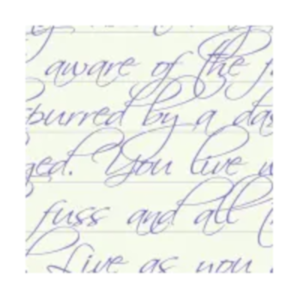 aware of the f
purred by a das
ged. You live w
fuss and all t
Live as you